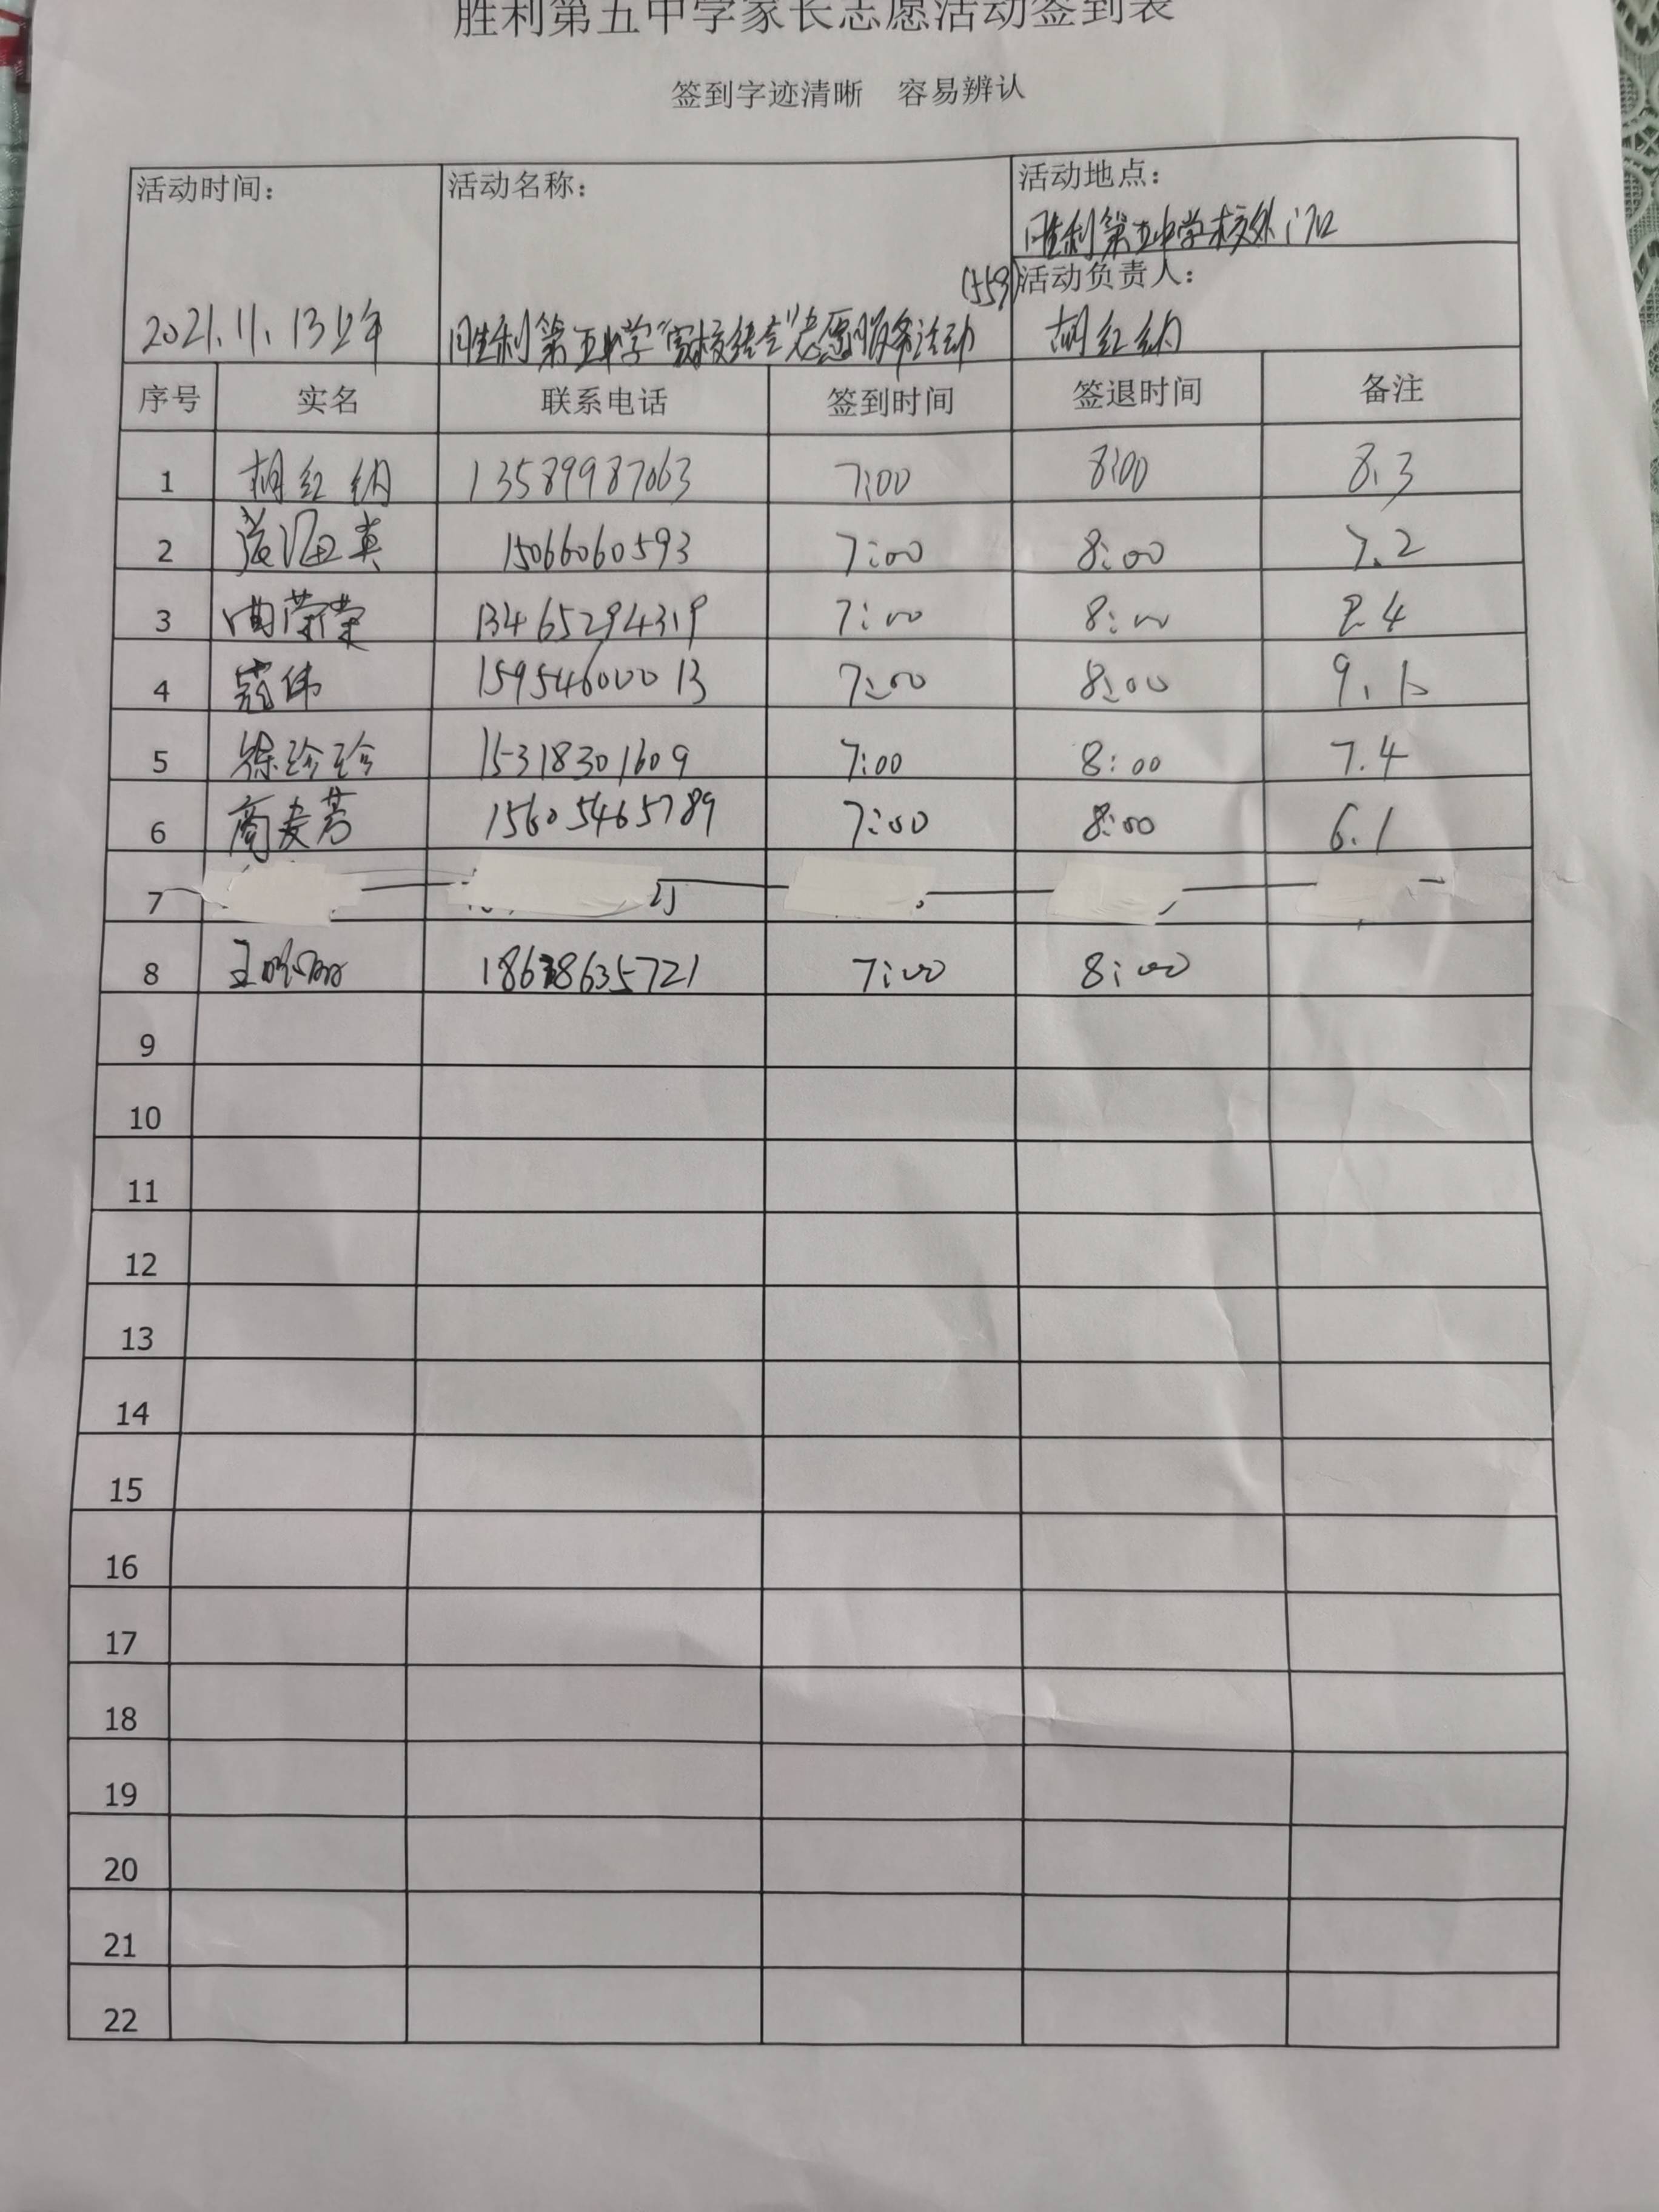 胜利第五中学家长志愿活动签到表
签到字迹清晰 容易辨认
活动时间： 活动名称： 活动地点：
胜利第五中学校外门口
(559) 活动负责人：
2021.11.13上午 胜利第五中学“家校结合”志愿服务活动 胡红纳
序号 实名 联系电话 签到时间 签退时间 备注
1 胡红纳 13589987063 7:00 8:00 8.3
2 海英 15066060593 7:00 8:00 7.2
3 曲荣荣 13465294319 7:00 8:00 2.4
4 寇伟 15954600013 7:00 8:00 9.
5 徐珍珍 15318301609 7:00 8:00 7.4
6 商麦芳 15605465789 7:00 8:00 6.1
7
8 王 7:00 8:00
9
10
11
12
13
14
15
16
17
18
19
20
21
22